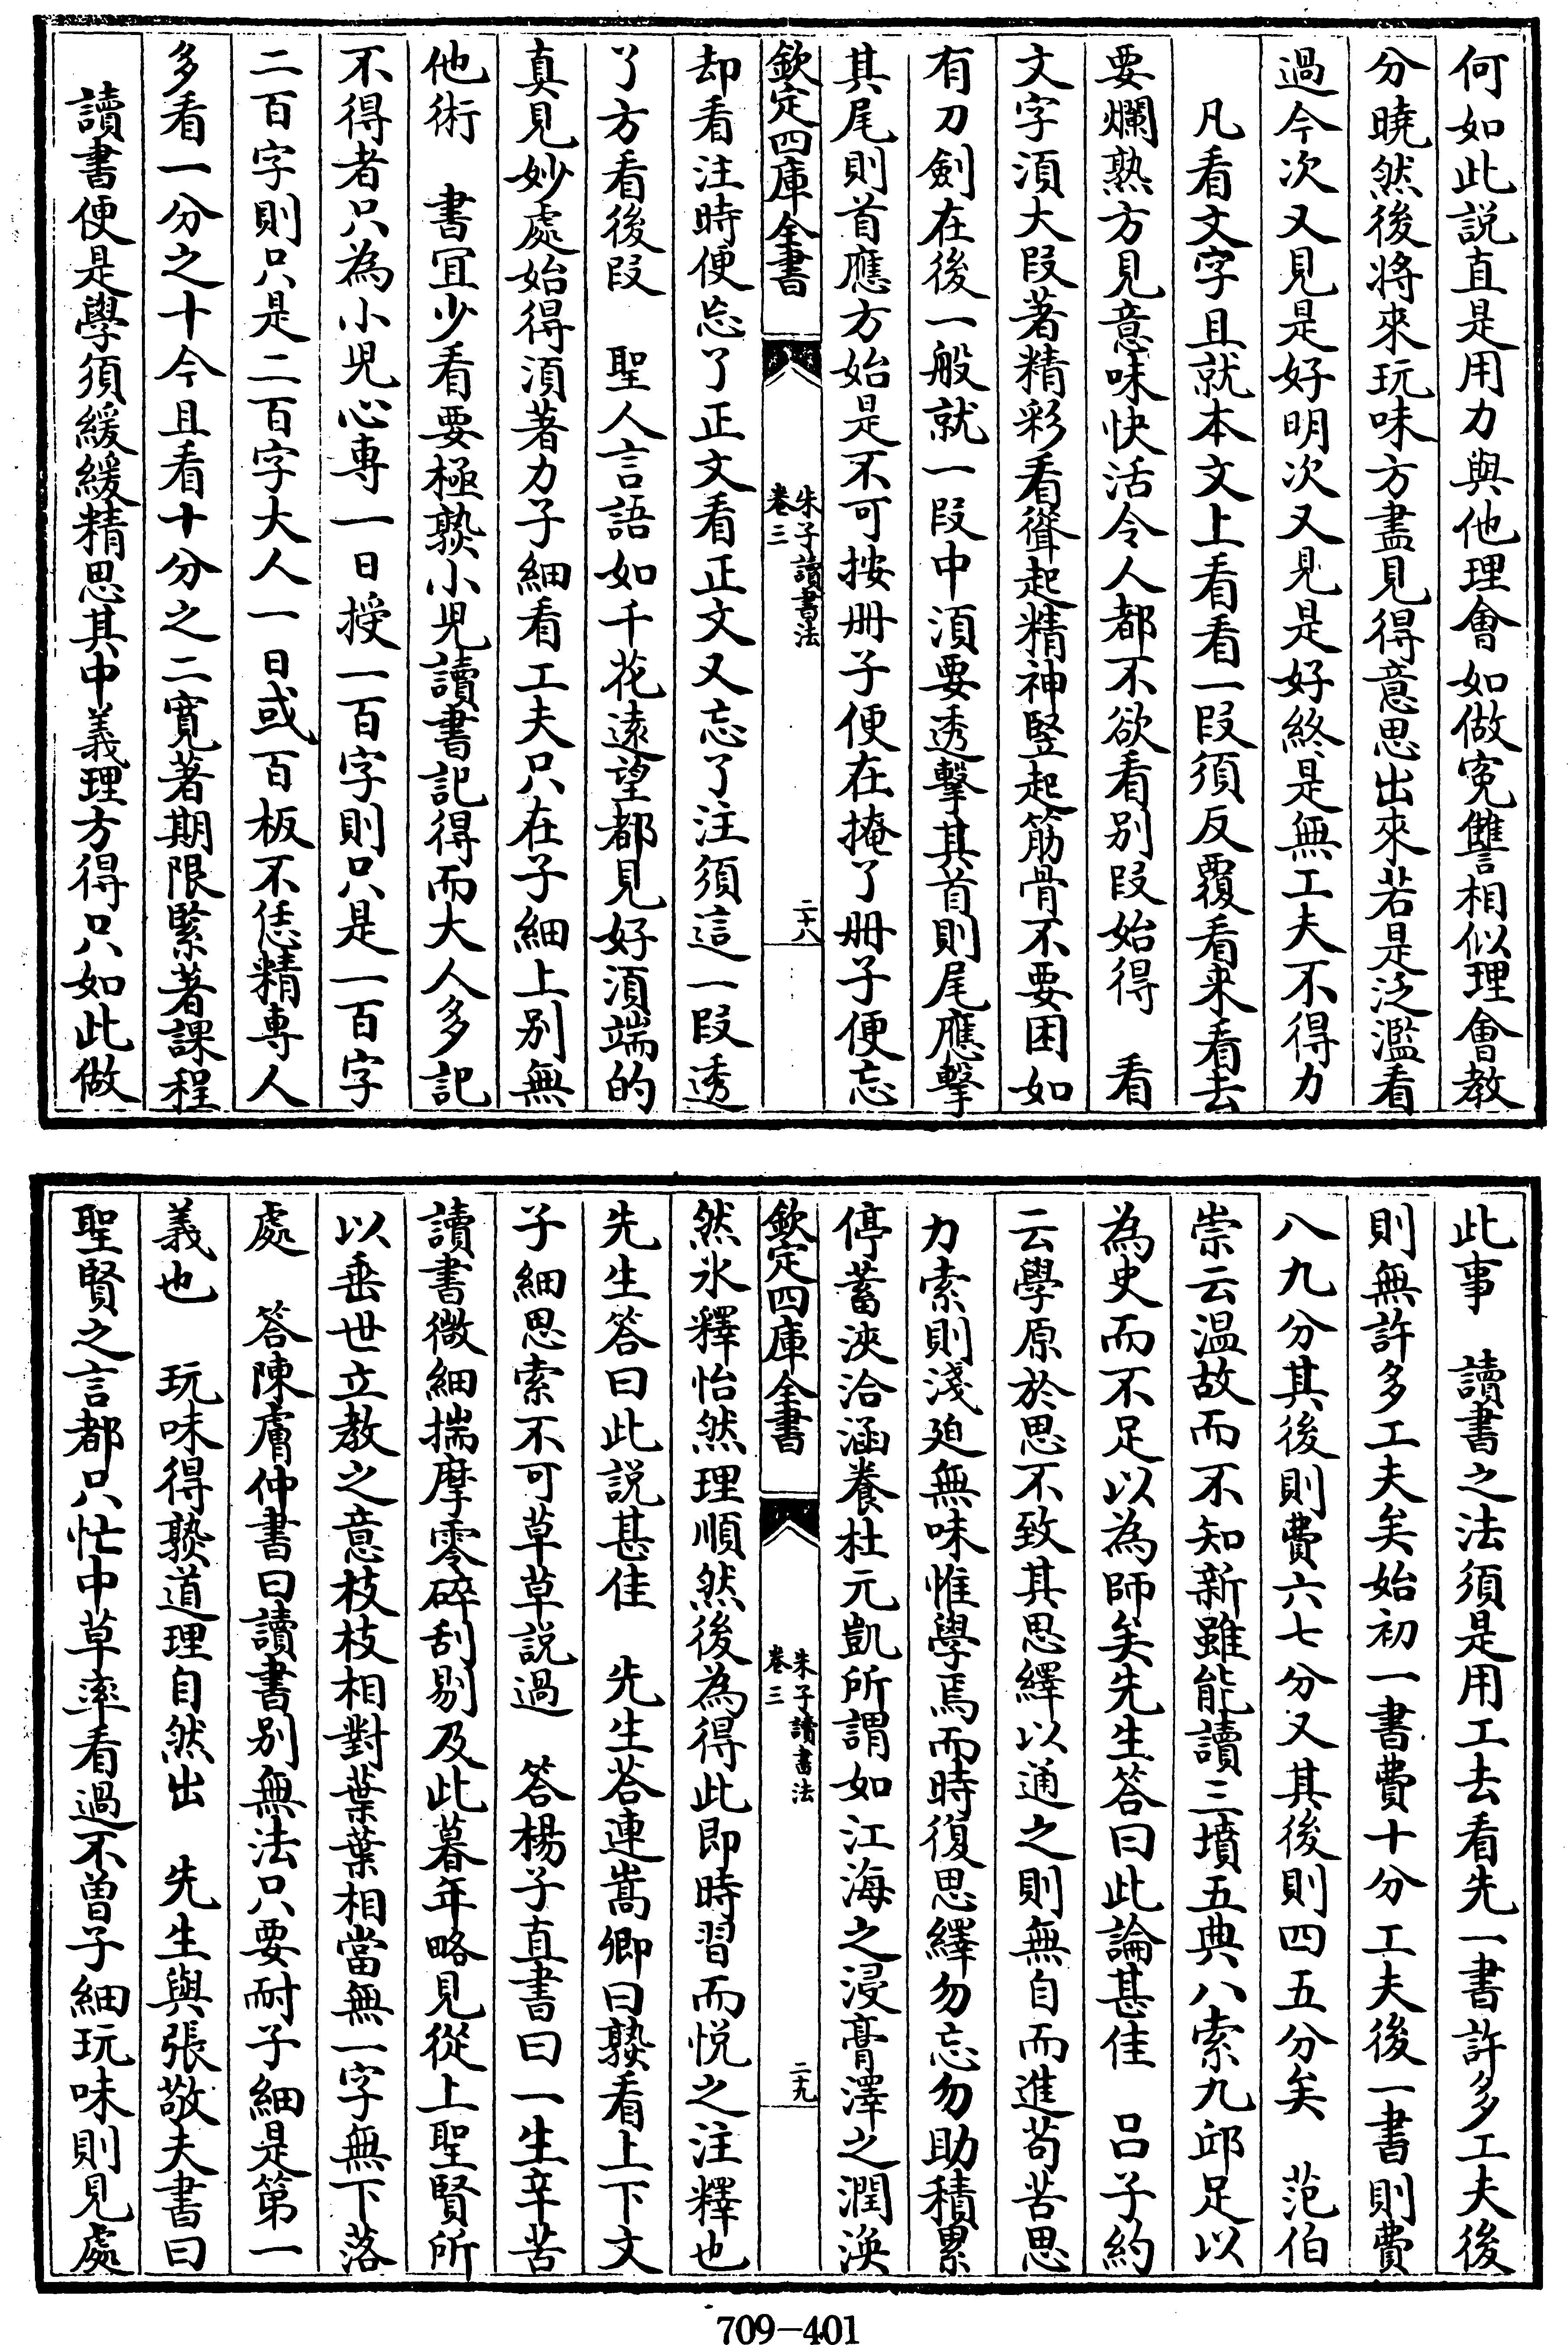 何如此説直是用力與他理會如做寃讐相似理會教
分曉然後将來玩味方盡見得意思出來若是泛濫看
過今次又見是好明次又見是好終是無工夫不得力
凡看文字且就本文上看看一段須反覆看来看去
要爛熟方見意味快活令人都不欲看别段始得　看
文字湏大段著精彩看聳起精神竪起筋骨不要困如
有刀劍在後一般就一段中湏要透擊其首則尾應擊
其尾則首應方始是不可按册子便在掩了册子便忘
欽定四庫全書
朱子讀書法
卷三
二十八
却看注時便忘了正文看正文又忘了注須這一段透
了方看後段　聖人言語如千花逺望都見好湏端的
真見妙處始得湏著力子細看工夫只在子細上别無
他術　書宜少看要極熟小児讀書記得而大人多記
不得者只為小児心専一日授一百字則只是一百字
二百字則只是二百字大人一日或百板不恁精専人
多看一分之十今且看十分之二寛著期限緊著課程
讀書便是學須緩緩精思其中義理方得只如此做
此事　讀書之法須是用工去看先一書許多工夫後
則無許多工夫矣始初一書費十分工夫後一書則費
八九分其後則費六七分又其後則四五分矣　范伯
崇云温故而不知新雖能讀三墳五典八索九邱足以
為史而不足以為師矣先生答曰此論甚佳　吕子約
云學原於思不致其思繹以通之則無自而進苟苦思
力索則淺廹無味惟學焉而時復思繹勿忘勿助積累
停蓄浹洽涵養杜元凱所謂如江海之浸膏澤之潤渙
欽定四庫全書
朱子讀書法
卷三
二十九
然氷釋怡然理順然後為得此即時習而悦之注釋也
先生答曰此説甚佳　先生答連嵩卿曰熟看上下文
子細思索不可草草説過　答楊子直書曰一生辛苦
讀書微細揣摩零碎刮剔及此暮年略見從上聖賢所
以垂世立教之意枝枝相對葉葉相當無一字無下落
處　答陳膚仲書曰讀書别無法只要耐子細是第一
義也　玩味得熟道理自然出　先生與張敬夫書曰
聖賢之言都只忙中草率看過不曽子細玩味則見處
709-401